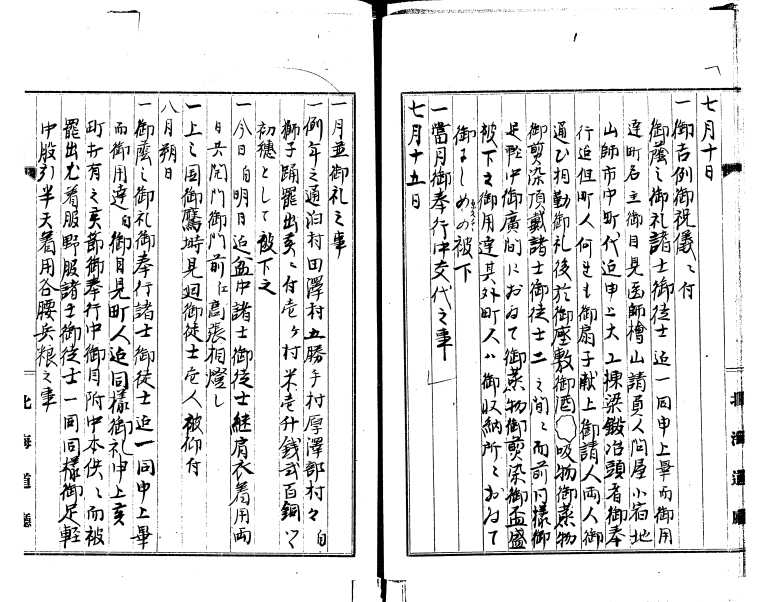 七月十日
一御吉例御祝儀ニ付
御蔭之御礼諸士御徒士迄一同申上畢而御用
達町名主御目見医師檜山請負人問屋小宿地
山師市中町代迄申上大工棟梁鍛冶頭者御奉
行迄但町人何连も御扇子献上御請人両人御
通ひ相勤御礼後於御座敷御酒吸物御菓物
御煎染頂戴諸士御徒士二之間ニ而前同様御
足軽中御廣間において御菓物御煎染御盃盛
被下之御用達其外町人ハ御収納所ニおゐて
御にしめの被下
一當月御奉行中交代之事
七月十五日
一月並御礼之事
一例年之通泊村田澤村五勝手村厚澤部村々自
獅子踊罷出候ニ付壱ヶ村米壱升銭弐百銅ツヽ
初穂として被下之
一今日自明日迄盆中諸士御徒士継肩衣着用両
日共開門御門前江高張相燈し
一上之国御鷹場見廻御徒士壱人被仰付
八月朔日
一御蔭之御礼御奉行諸士御徒士迄一同申上畢
而御用達自御目見町人迄同様御礼申上候
町方有之候節御奉行中御目附中本供ニ而被
罷出尤着服野服諸士御徒士一同同様御足軽
中股引半天着用各腰兵粮之事
北海道廳
北海道廳